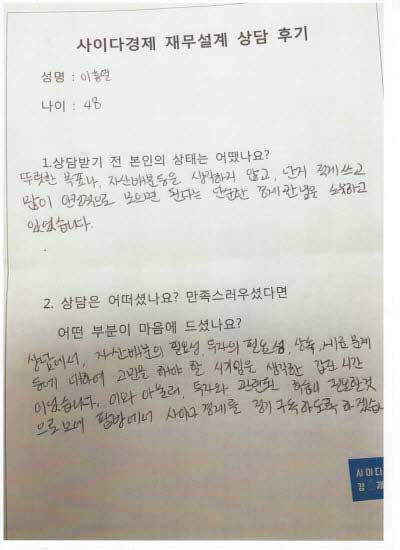 사이다경제 재무설계 상담 후기
성명 : 이홍열
나이 : 48
1.상담받기 전 본인의 상태는 어땠나요?
뚜렷한 목표나, 자산배분등을 생각하지 않고, 단지 적게 쓰고
많이 안정적으로 모으면 된다는 단순한 경제관념을 소유하고
있었습니다.
2. 상담은 어떠셨나요? 만족스러우셨다면
어떤 부분이 마음에 드셨나요?
상담에서, 자산배분의 필요성, 투자의 필요성, 상속, 세금 문제
등에 대하여 고민을 해야 할 시기임을 생각한 값진 시간
이었습니다. 이와 아울러, 투자와 관련된 학습이 필요한것
으로 보여 사이다경제를 정기구독하도록 하겠습
사이다
경제